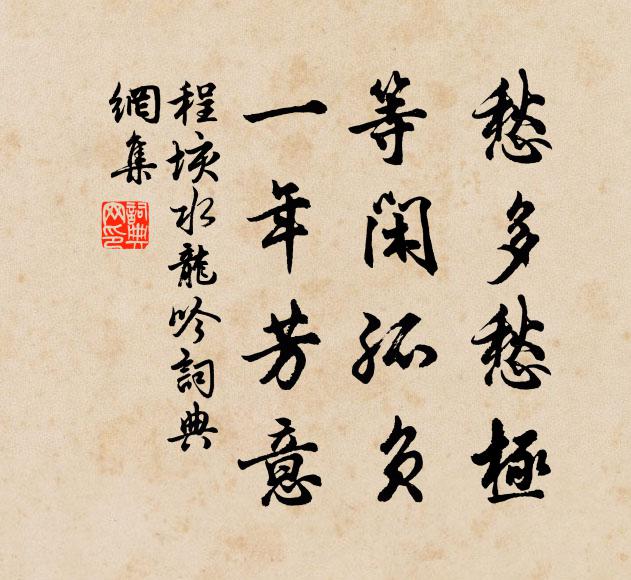 愁多愁極
等閑孤負
一年芳意
程垓水龍吟詞典
網集
詞典
网印